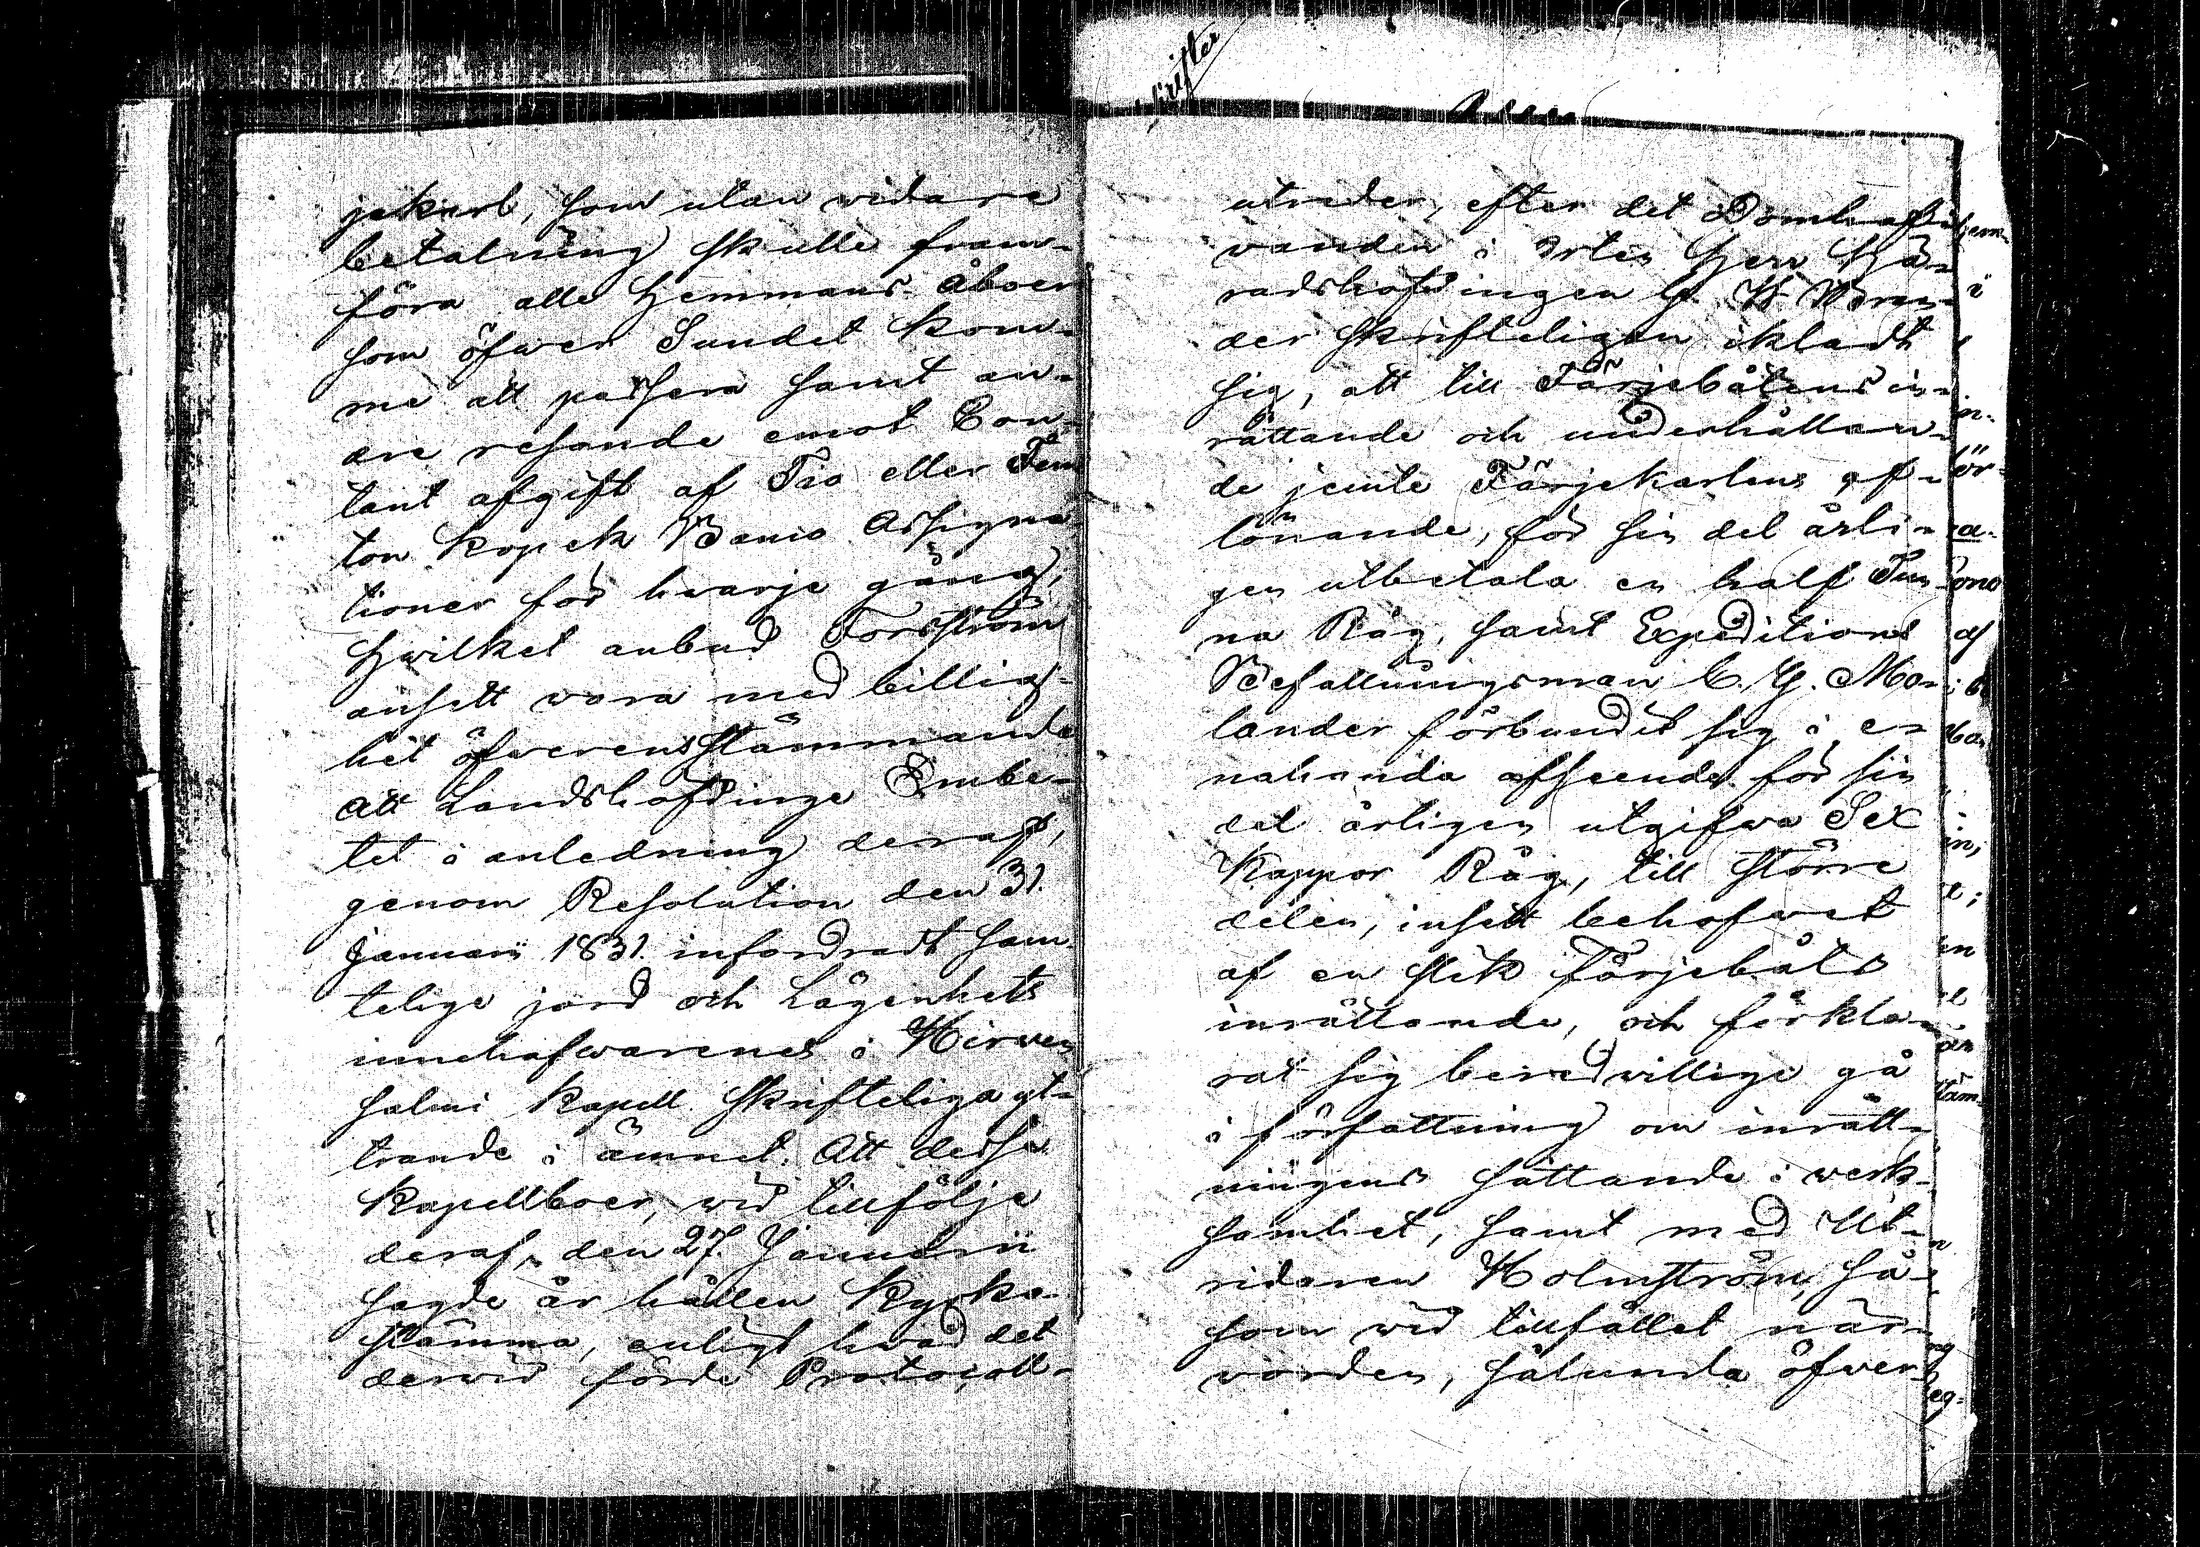 jekarl, som utan vidare
betalning skulle fram-
föra alla Hemmans Åboer
som öfwer Sundet kom-
me att passera samt an-
dre resande emot Con-
tant afgift af Tio eller Fem
ton Kopek Banco Assigna-
tioner för hvarje gång;
Hwilket anbud Forsström
ansett wara med billig-
het öfwerensstämmande
Att Landshöfdinge Embe-
tet i anledning deraf,
genom Resolution den 31.
Januarii 1831. infordradt sam-
telige jord och Lägenhets
innehafwarenes i Hirwen
salmi Kapell skrifteliga yt-
trande i ämnet. Att desse
Kapellboer, wid tillfölje
deraf, den 27. Januarii
sagde år hållen Kyrko-
stämma, enligt hvad det
derwid förde Protocoll
utreder, efter det Domhaf-
vanden i Orten Herr Hä-
radshöfdingen
der skrifteligen iklädt
sig, att till Färjebåtens in-
rättande och underhållan-
de jemte Färjekarlens af-
lönande, för sin del årli-
gen utbetala en half Tun
na Råg, samt Expeditions
Befallningsman C. G. Mo-
lander förbundit sig i e-
nahanda afseende för sin
del årligen utgifwa Sex
Kappor Råg, till större
delen, insett behofwet
af en slik Färjebåts
inrättande, och förkla-
rat sig beredvillige gå
i författning om inrätt-
ningens sättande i werk-
samhet, samt med Ut-
ridaren Holmström, så-
som wid tillfället när-
varden, sålunda öfwer-